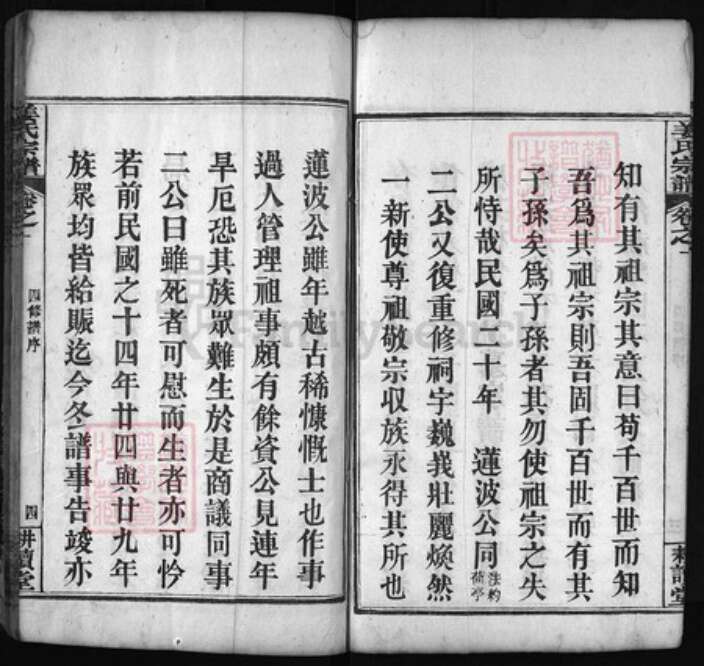 知有其祖宗其意曰苟千百世而知
吾爲其祖宗則吾固千百世而有其
子孫矣爲子孫者其勿使祖宗之失
所恃哉民國二十年 蓮波公同
二公又復重修祠宇巍峩壯麗煥然
一新使尊祖敬宗収族永得其所也
姜氏宗譜 卷之一
耕讀堂
蓮波公雖年越古稀慷慨士也作事
過人管理祖事頗有餘資公見連年
旱厄恐其族眾難生於是商議同事
二公曰雖死者可慰而生者亦可怜
若前民國之十四年廿四與廿九年
族眾均皆給賑迄今冬譜事告竣亦
姜氏宗譜 卷之一
四修譜序
四
耕讀堂
FamilySearch